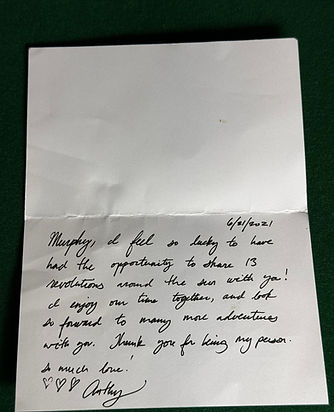 6/21/2021
Murphy, I feel so lucky to have
had the opportunity to share 13
revolutions around the sun with you!
I enjoy our time together, and look
so forward to many more adventures
with you. Thank you for being my person.
so much love!
♡♡♡